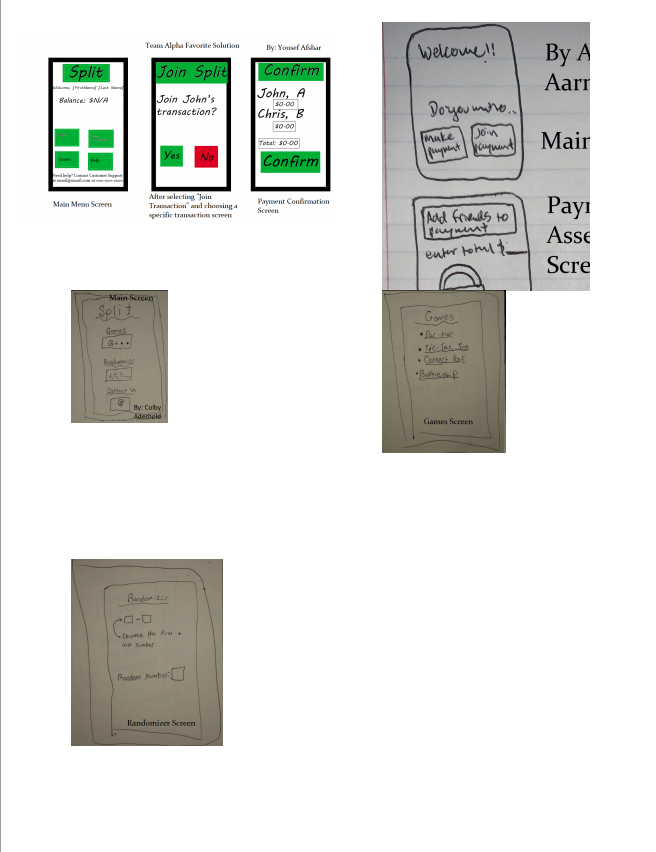 Team Alpha Favorite Solution
By: Yousef Afshar
Split
Welcome, [FirstName] [Last Name]
Balance: $N/A
Games
Help
Need help? Contact Customer Support
at email@email.com or 000-000-0000
Main Menu Screen
Join Split
Join John's
transaction?
Yes
No
After selecting "Join
Transaction" and choosing a
specific transaction screen
Confirm
John, A
$0.00
Chris, B
$0.00
Total: $0.00
Confirm
Payment Confirmation
Screen
Welcome!!
Do you want to..
make
payment
Join
payment
By A
Aarn
Main
Add friends to
payment
enter total $
Payn
Asse
Scre
Main Screen
Split
Games
Randomizer
1,2,3...
Contact us
@
By: Colby
Aderhold
Games
Pac-man
Tic-Tac-Toe
Connect Four
Battleship
Games Screen
Randomizer
Choose the First +
last number
Random Number:
Randomizer Screen